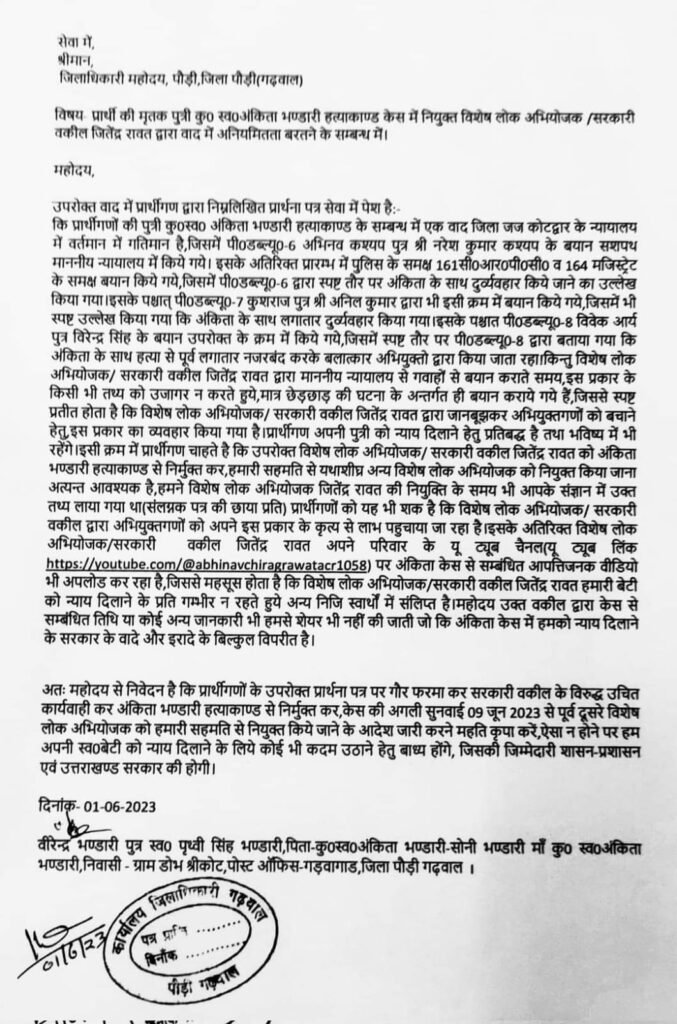 सेवा में,
श्रीमान,
जिलाधिकारी महोदय, पौड़ी,जिला पौड़ी(गढ़वाल)
विषय- प्रार्थी की मृतक पुत्री कु0 स्व0अंकिता भण्डारी हत्याकाण्ड केस में नियुक्त विशेष लोक अभियोजक /सरकारी
वकील जितेंद्र रावत द्वारा वाद में अनियमितता बरतने के सम्बन्ध में।
महोदय,
उपरोक्त वाद में प्रार्थीगण द्वारा निम्नलिखित प्रार्थना पत्र सेवा में पेश है:-
कि प्रार्थीगणों की पुत्री कु0स्व0 अंकिता भण्डारी हत्याकाण्ड के सम्बन्ध में एक वाद जिला जज कोटद्वार के न्यायालय
में वर्तमान में गतिमान है,जिसमें पी0डब्ल्यू0-6 अभिनव कश्यप पुत्र श्री नरेश कुमार कश्यप के बयान सशपथ
माननीय न्यायालय में किये गये। इसके अतिरिक्त प्रारम्भ में पुलिस के समक्ष 161सी0आर0पी0सी0 व 164 मजिस्ट्रेट
के समक्ष बयान किये गये,जिसमें पी0डब्ल्यू0-6 द्वारा स्पष्ट तौर पर अंकिता के साथ दुर्व्यवहार किये जाने का उल्लेख
किया गया।इसके पश्चात् पी0डब्ल्यू0-7 कुशराज पुत्र श्री अनिल कुमार द्वारा भी इसी क्रम में बयान किये गये,जिसमें भी
स्पष्ट उल्लेख किया गया कि अंकिता के साथ लगातार दुर्व्यवहार किया गया।इसके पश्चात पी0डब्ल्यू0-8 विवेक आर्य
पुत्र विरेन्द्र सिंह के बयान उपरोक्त के क्रम में किये गये,जिसमें स्पष्ट तौर पर पी0डब्ल्यू0-8 द्वारा बताया गया कि
अंकिता के साथ हत्या से पूर्व लगातार नजरबंद करके बलात्कार अभियुक्तो द्वारा किया जाता रहा।किन्तु विशेष लोक
अभियोजक/ सरकारी वकील जितेंद्र रावत द्वारा माननीय न्यायालय से गवाहों से बयान कराते समय,इस प्रकार के
किसी भी तथ्य को उजागर न करते हुये,मात्र छेड़छाड़ की घटना के अन्तर्गत ही बयान कराये गये हैं,जिससे स्पष्ट
प्रतीत होता है कि विशेष लोक अभियोजक/ सरकारी वकील जितेंद्र रावत द्वारा जानबूझकर अभियुक्तगणों को बचाने
हेतु,इस प्रकार का व्यवहार किया गया है।प्रार्थीगण अपनी पुत्री को न्याय दिलाने हेतु प्रतिबद्ध है तथा भविष्य में भी
रहेंगे।इसी क्रम में प्रार्थीगण चाहते है कि उपरोक्त विशेष लोक अभियोजक/ सरकारी वकील जितेंद्र रावत को अंकिता
भण्डारी हत्याकाण्ड से निर्मुक्त कर,हमारी सहमति से यथाशीघ्र अन्य विशेष लोक अभियोजक को नियुक्त किया जाना
अत्यन्त आवश्यक है,हमने विशेष लोक अभियोजक जितेंद्र रावत की नियुक्ति के समय भी आपके संज्ञान में उक्त
तथ्य लाया गया था(संलग्नक पत्र की छाया प्रति) प्रार्थीगणों को यह भी शक है कि विशेष लोक अभियोजक/ सरकारी
वकील द्वारा अभियुक्तगणों को अपने इस प्रकार के कृत्य से लाभ पहुचाया जा रहा है।इसके अतिरिक्त विशेष लोक
अभियोजक/सरकारी वकील जितेंद्र रावत अपने परिवार के यू ट्यूब चैनल(यू ट्यूब लिंक
https://youtube.com/@abhinavchiragrawatacr1058) पर अंकिता केस से सम्बंधित आपत्तिजनक वीडियो
भी अपलोड कर रहा है,जिससे महसूस होता है कि विशेष लोक अभियोजक/सरकारी वकील जितेंद्र रावत हमारी बेटी
को न्याय दिलाने के प्रति गम्भीर न रहते हुये अन्य निजि स्वार्थों में संलिप्त है।महोदय उक्त वकील द्वारा केस से
सम्बंधित तिथि या कोई अन्य जानकारी भी हमसे शेयर भी नहीं की जाती जो कि अंकिता केस में हमको न्याय दिलाने
के सरकार के वादे और इरादे के बिल्कुल विपरीत है।
अतः महोदय से निवेदन है कि प्रार्थीगणों के उपरोक्त प्रार्थना पत्र पर गौर फरमा कर सरकारी वकील के विरुद्ध उचित
कार्यवाही कर अंकिता भण्डारी हत्याकाण्ड से निर्मुक्त कर,केस की अगली सुनवाई 09 जून 2023 से पूर्व दूसरे विशेष
लोक अभियोजक को हमारी सहमति से नियुक्त किये जाने के आदेश जारी करने महति कृपा करें,ऐसा न होने पर हम
अपनी स्व0बेटी को न्याय दिलाने के लिये कोई भी कदम उठाने हेतु बाध्य होंगे, जिसकी जिम्मेदारी शासन-प्रशासन
एवं उत्तराखण्ड सरकार की होगी।
दिनांक- 01-06-2023
वीरेन्द्र भण्डारी पुत्र स्व0 पृथ्वी सिंह भण्डारी,पिता-कु0स्व0अंकिता भण्डारी-सोनी भण्डारी माँ कु0 स्व0अंकिता
भण्डारी,निवासी - ग्राम डोभ श्रीकोट,पोस्ट ऑफिस-गड़वागाड,जिला पौड़ी गढ़वाल ।
कार्यालय जिलाधिकारी गढ़वाल
पत्र प्राप्ति ..........
दिनाँक ..........
पौड़ी गढ़वाल
01/6/23